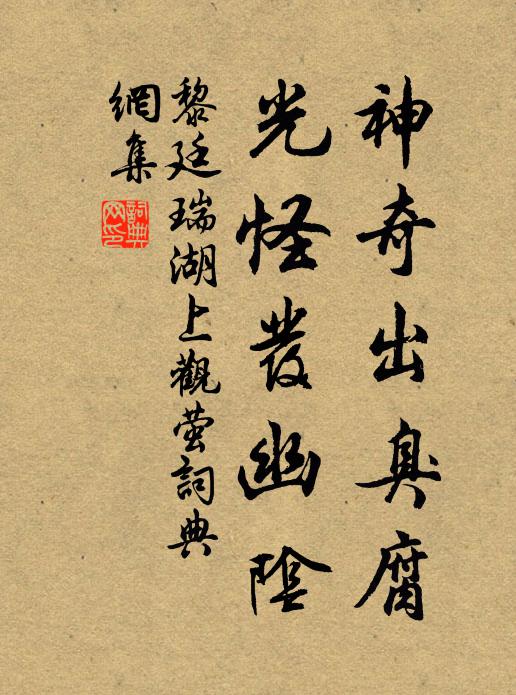 神奇出臭腐
光怪發幽陰
黎廷瑞湖上觀螢詞典
網集
詞典網印